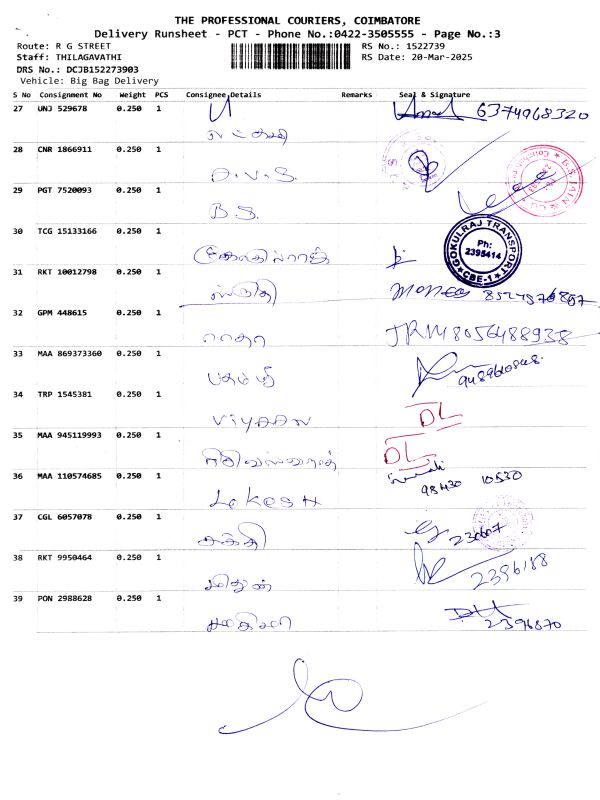 THE PROFESSIONAL COURIERS, COIMBATORE
Delivery Runsheet - PCT - Phone No.:0422-3505555 - Page No.:3
Route: R G STREET RS No.: 1522739
Staff: THILAGAVATHI RS Date: 20-Mar-2025
DRS No.: DCJB152273903
Vehicle: Big Bag Delivery
S No Consignment No Weight PCS Consignee Details Remarks Seal & Signature
27 UNJ 529678 0.250 1 6374968320
28 CNR 1866911 0.250 1
D.V.S.
29 PGT 7520093 0.250 1
B.S.
30 TCG 15133166 0.250 1
GOKULRAJ TRANSPORT Ph: 2395414 CBE-1
31 RKT 10012798 0.250 1
32 GPM 448615 0.250 1 JRM 8056488938
ராதா
33 MAA 869373360 0.250 1
பத்மஸ்ரீ
34 TRP 1545381 0.250 1 DL
Viyaan
35 MAA 945119993 0.250 1 DL
36 MAA 110574685 0.250 1 98430 10530
Lokesh
37 CGL 6057078 0.250 1
சக்தி
38 RKT 9950464 0.250 1 2396188
மிதுன்
39 PON 2988628 0.250 1 2396870